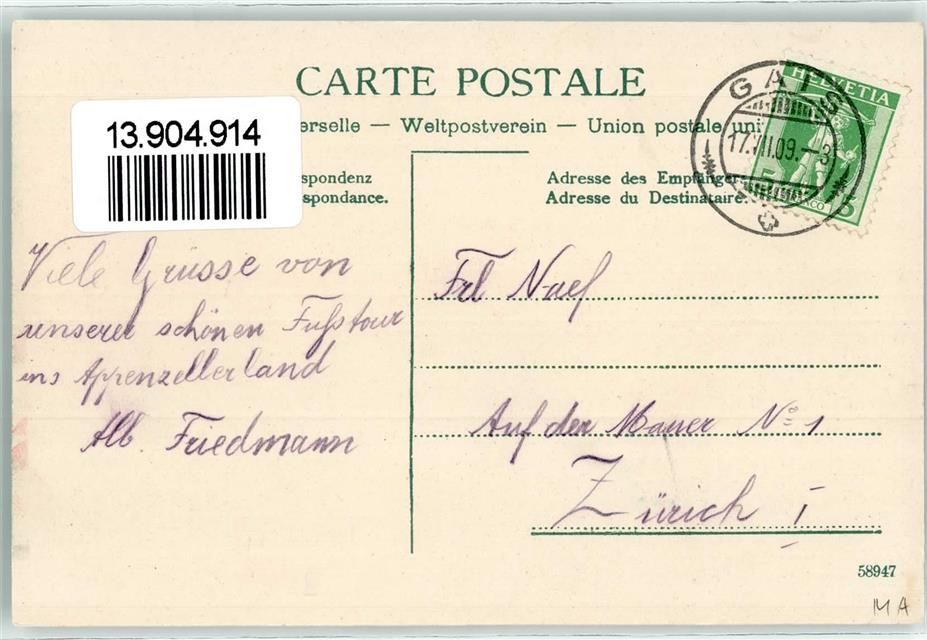 CARTE POSTALE
13.904.914
erselle — Weltpostverein — Union postale uni
spondenz
spondance.
Adresse des Empfänger
Adresse du Destinataire.
HELVETIA
5
5
GAIS
17.VII.09.–3
Viele Grüsse von
unserer schönen Fußtour
ins Appenzellerland
Alb. Friedmann
Frl Naef
Auf der Mauer No 1
Zürich I
58947
MA